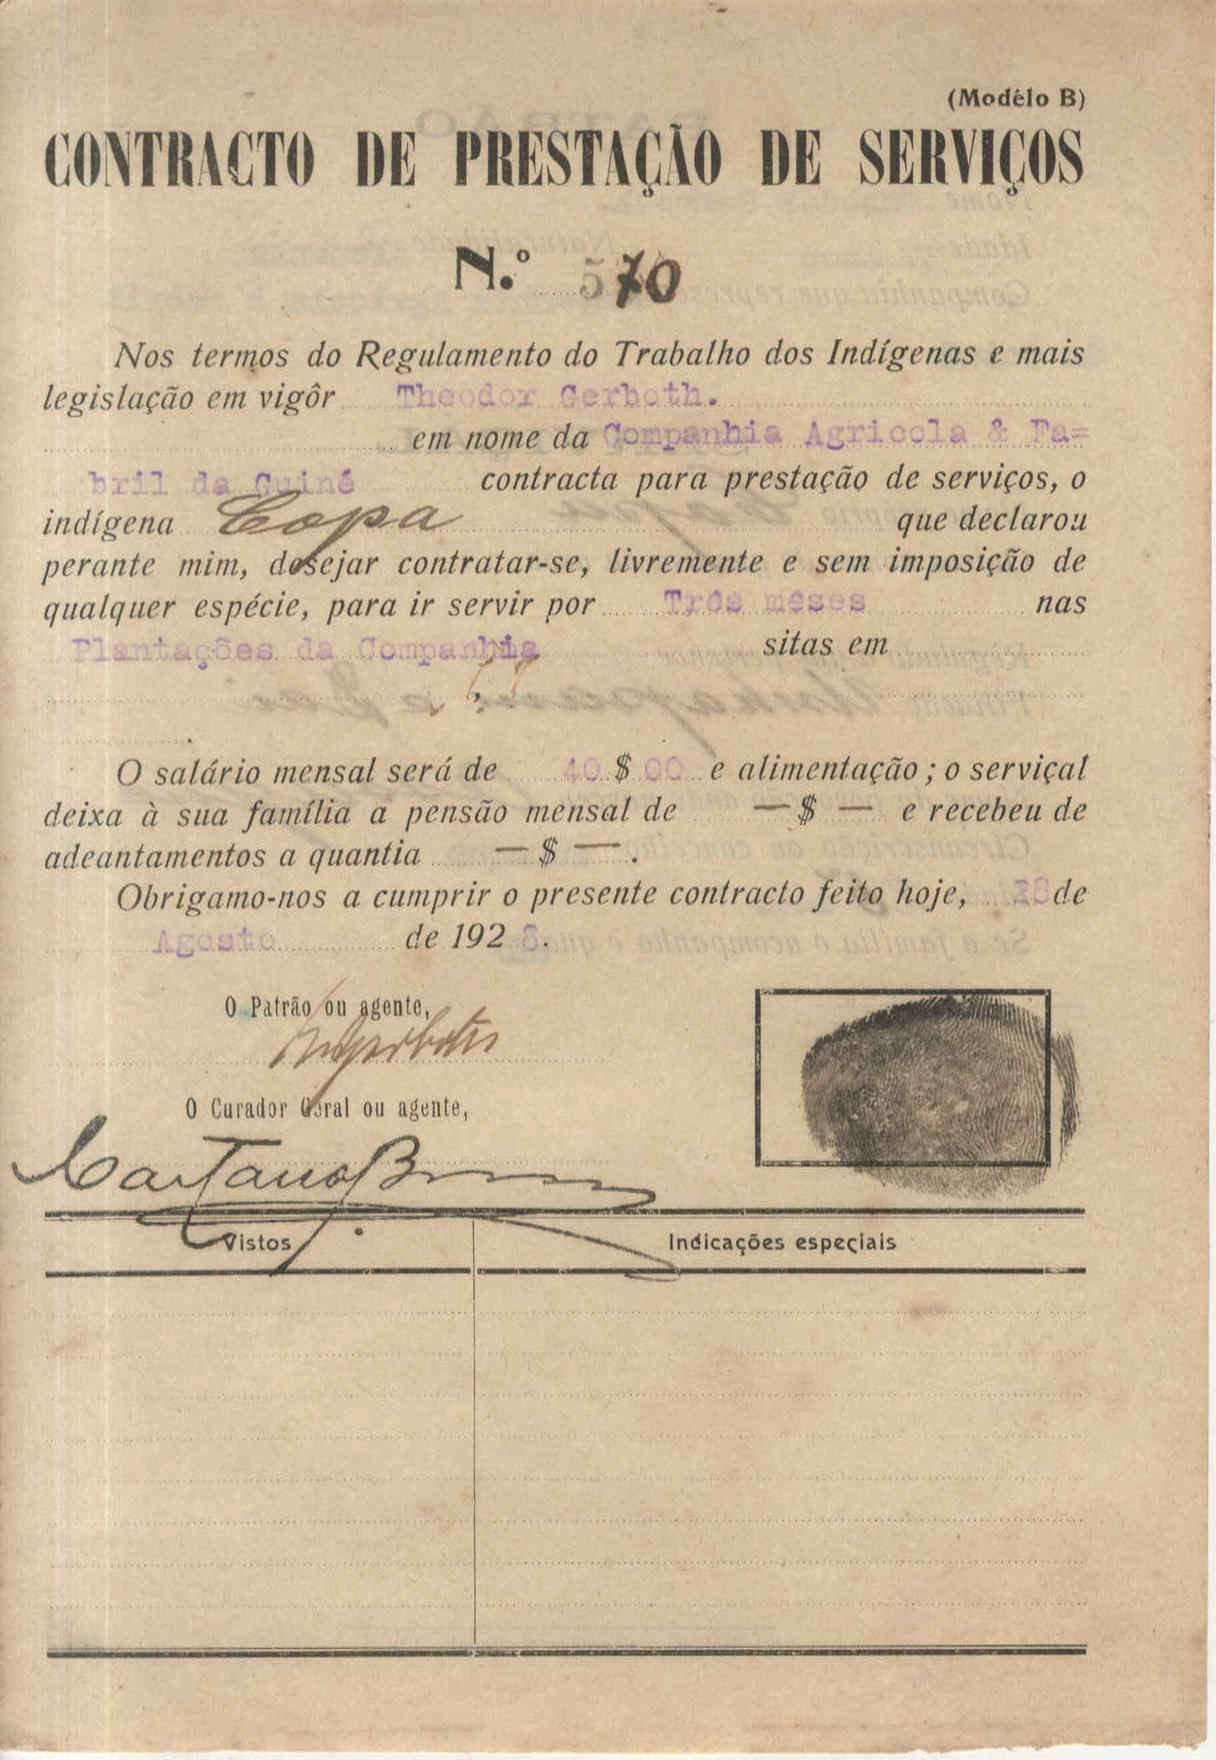 (Modêlo B)
CONTRACTO DE PRESTAÇÃO DE SERVIÇOS
N.º 570
Nos termos do Regulamento do Trabalho dos Indígenas e mais
legislação em vigôr Theodor Gerboth.
em nome da Companhia Agricola & Fa=
bril da Guiné contracta para prestação de serviços, o
indígena Copa que declarou
perante mim, desejar contratar-se, livremente e sem imposição de
qualquer espécie, para ir servir por Três mêses nas
Plantações da Companhia sitas em
O salário mensal será de 40 $ 00 e alimentação; o serviçal
deixa à sua família a pensão mensal de — $ — e recebeu de
adeantamentos a quantia — $ — .
Obrigamo-nos a cumprir o presente contracto feito hoje, de
Agosto de 192 8.
O Patrão ou agente,
O Curador Geral ou agente,
Caetano
Vistos Indicações especiais